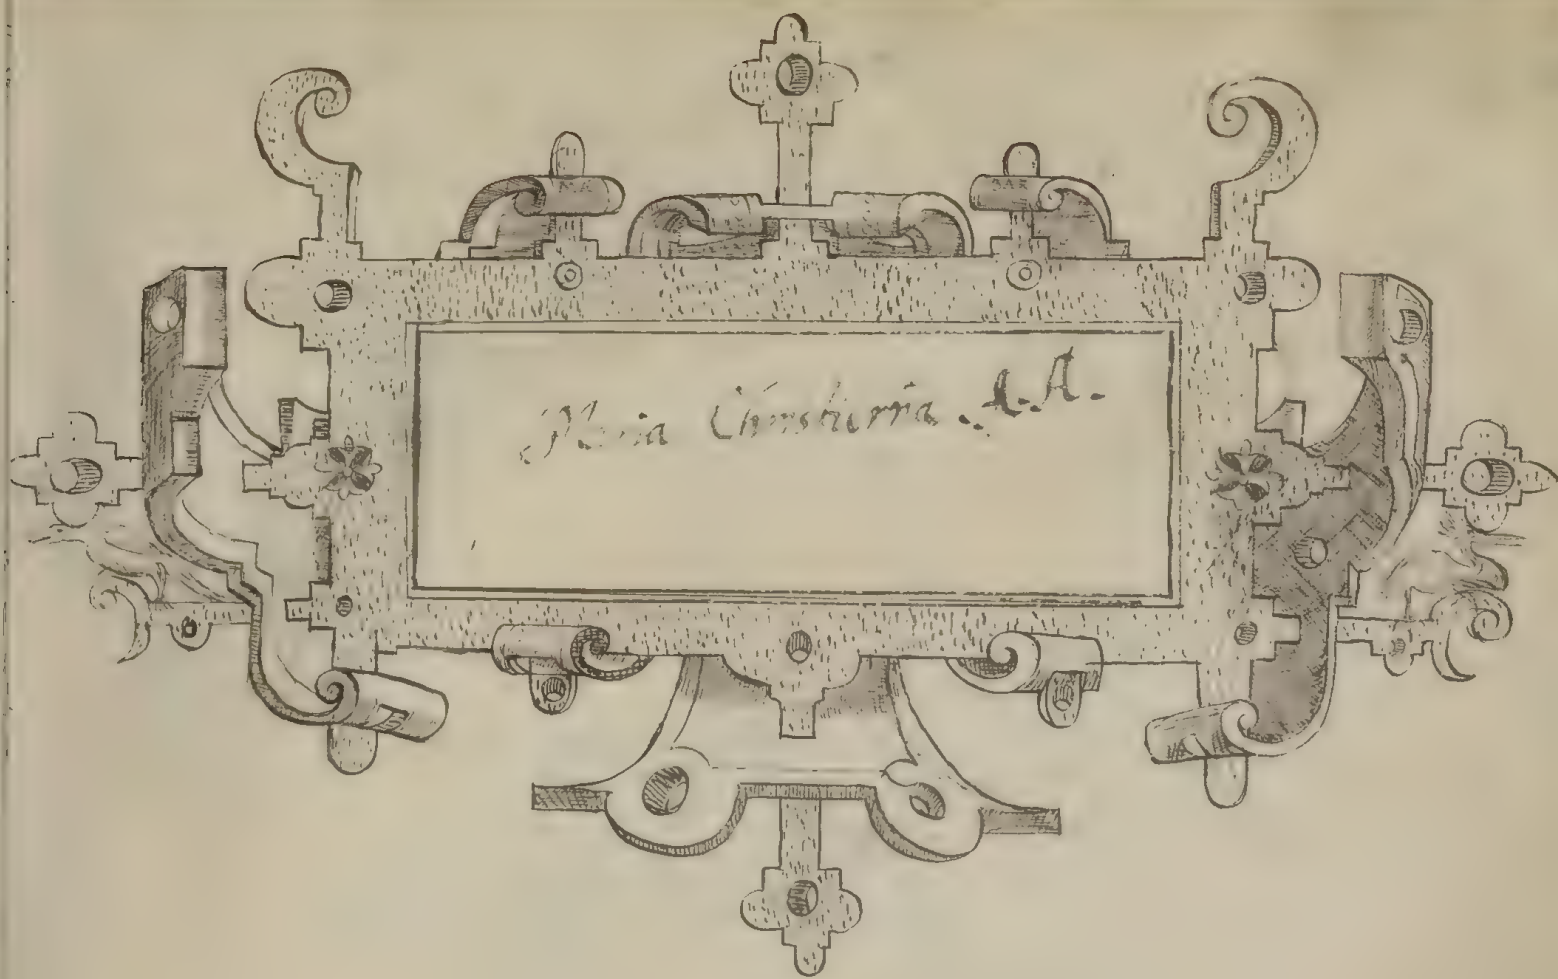 Maria Christierna A.A.